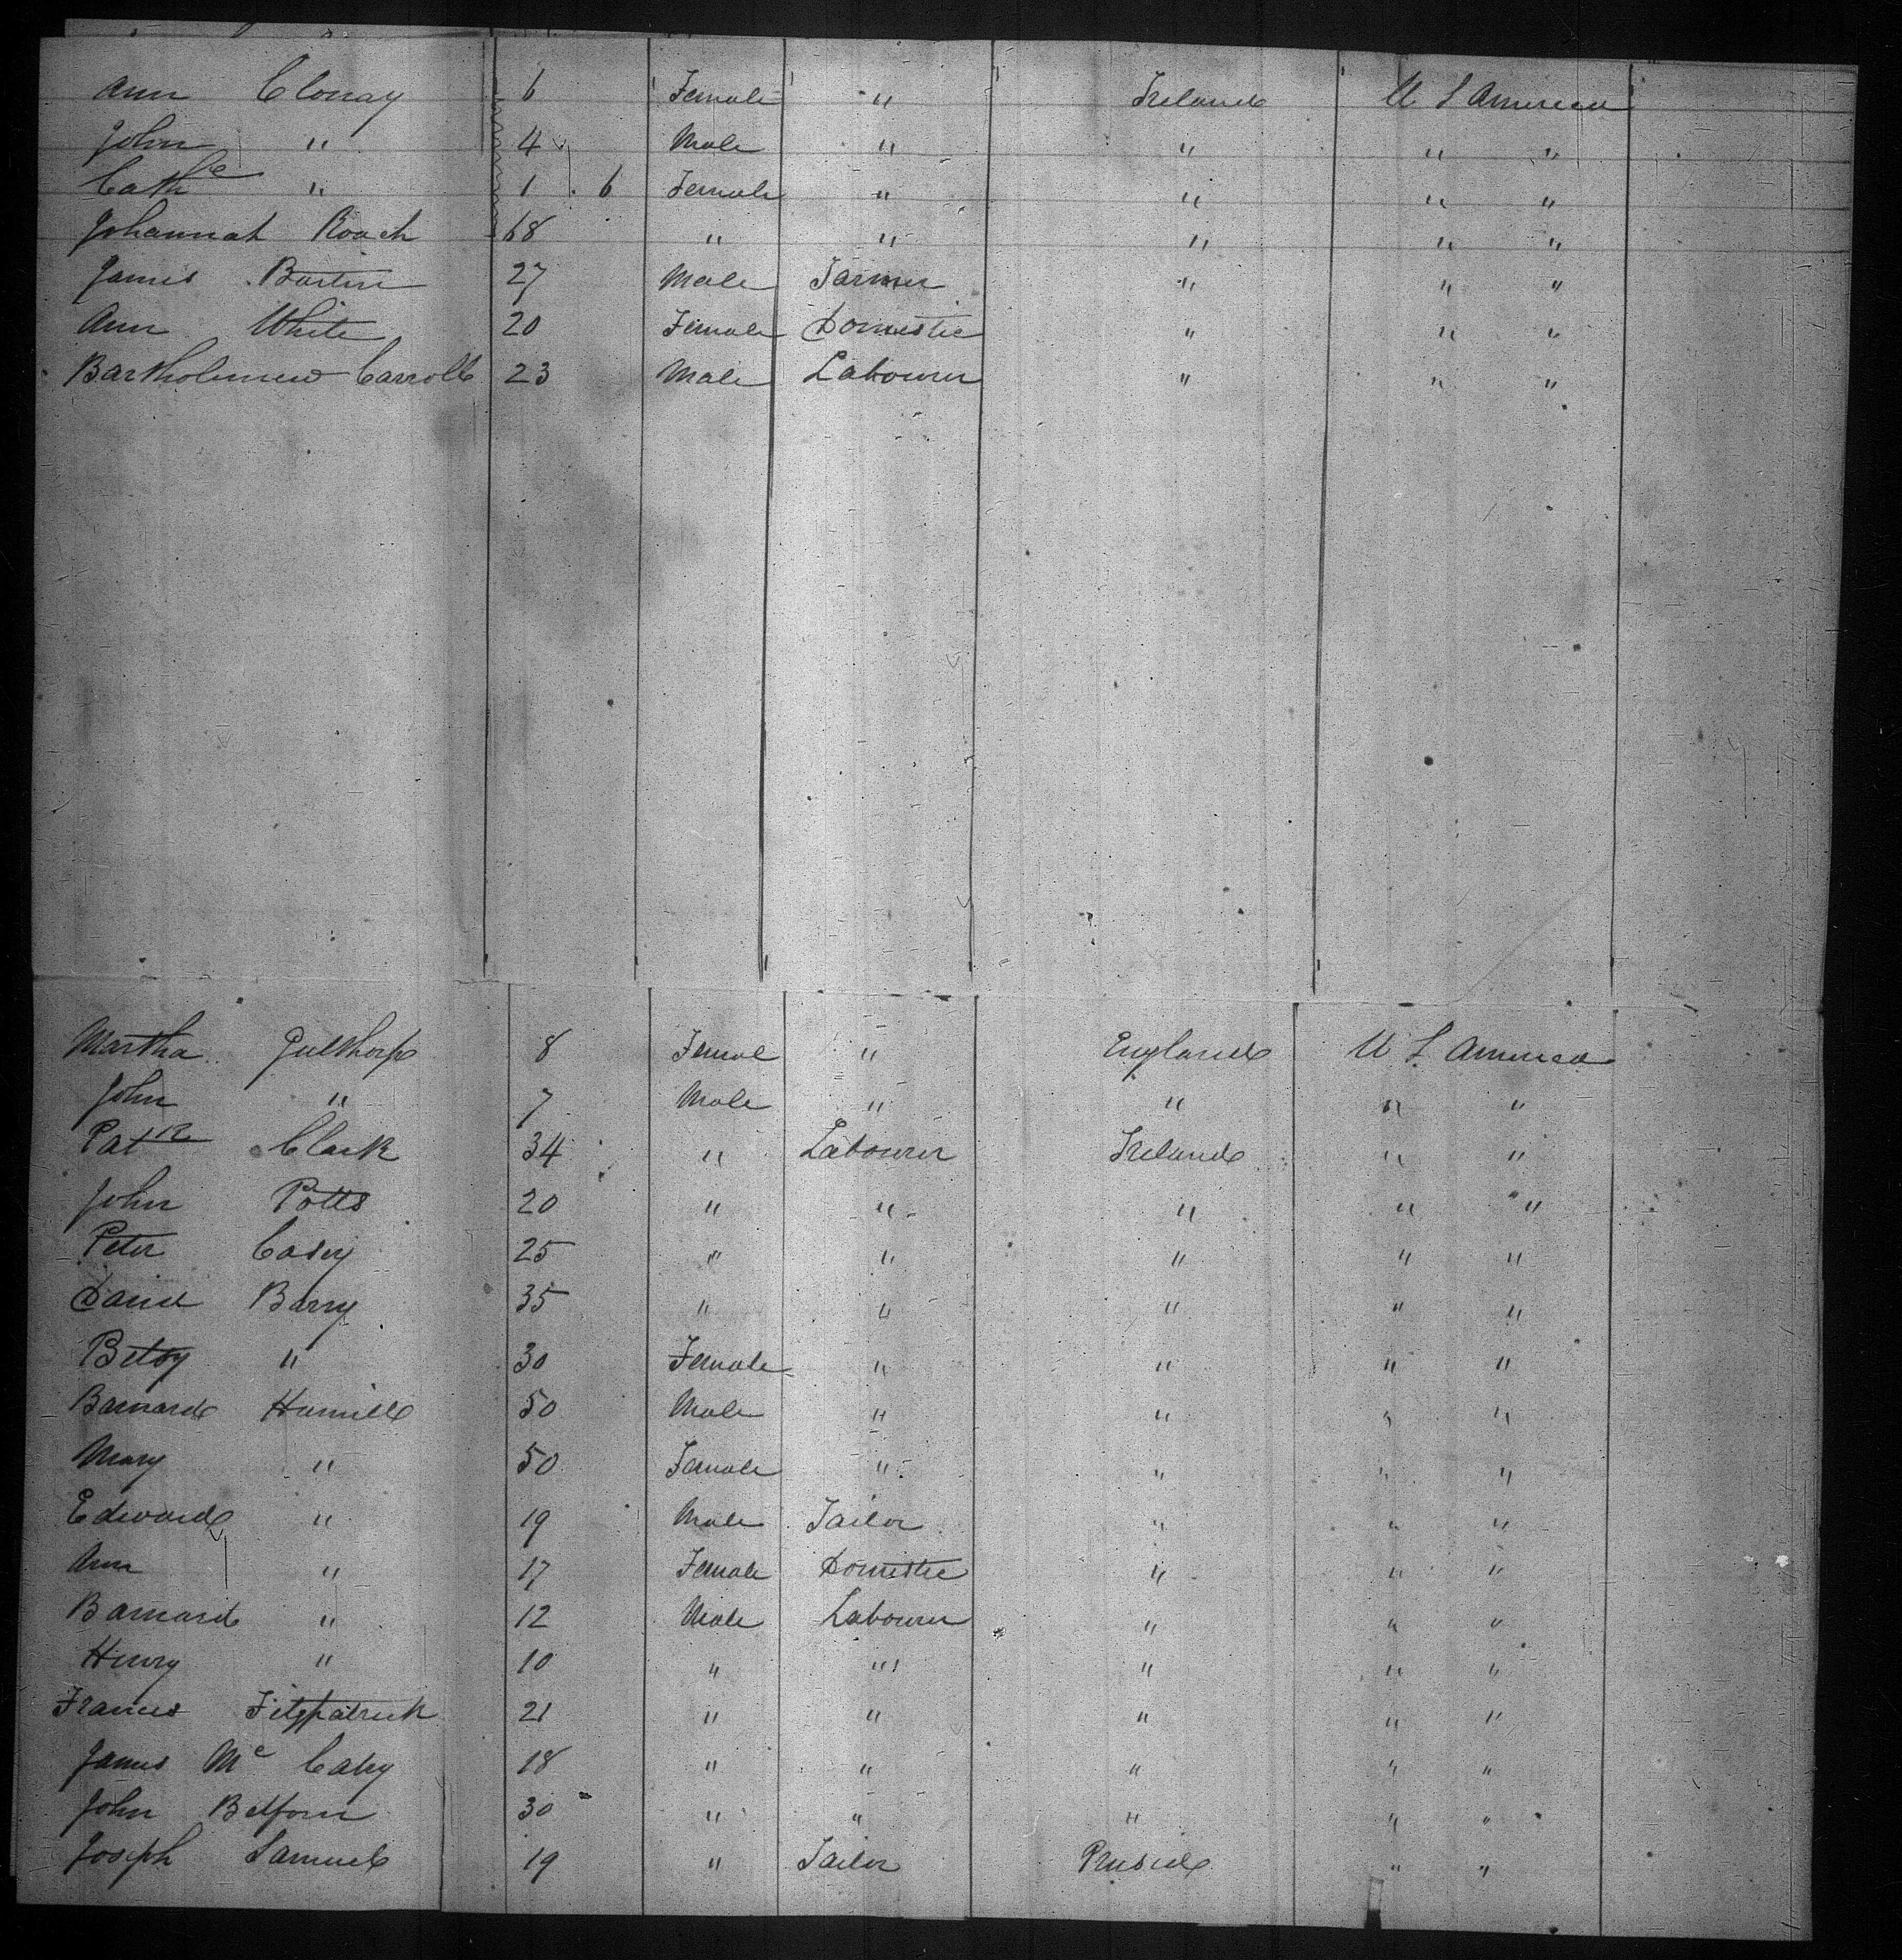 Ann Clonay 6 Female " Ireland U S America
John " 4 Male " " " "
Cathe " 1 . 6 Female " " " "
Johannah Roach 68 " " " " "
James Bastin 27 Male Farmer " " "
Ann White 20 Female Domestic " " "
Bartholemew Carroll 23 Male Labourer " " "
Martha 8 Femal " England U S America
John " 7 Male " " " "
Patrk Clark 34 " Labourer Ireland " "
John Potts 20 " " " " "
Peter Casey 25 " " " " "
David Barry 35 " " " " "
Betsy " 30 Female " " " "
Barnard Hamill 50 Male " " " "
Mary " 50 Female " " " "
Edward " 19 Male Tailor " " "
Ann " 17 Female Domestic " " "
Barnard " 12 Male Labourer " " "
Henry " 10 " " " " "
Frances Fitzpatrick 21 " " " " "
James Mc Caby 18 " " " " "
John 30 " " " " "
Joseph Samuel 19 " Tailor " "